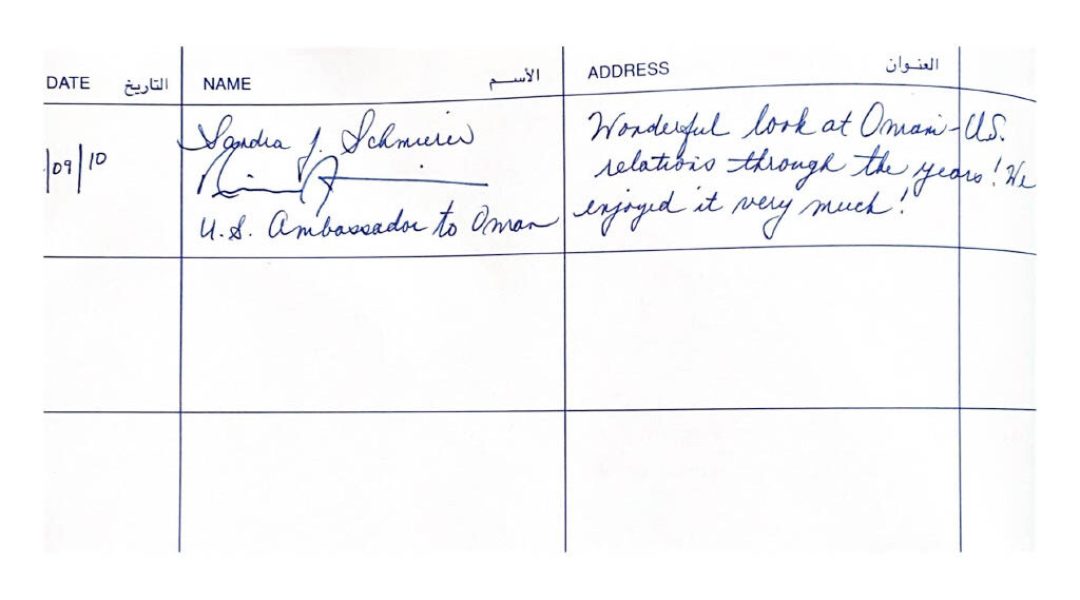 DATE التاريخ NAME الأسـم ADDRESS العنـوان
/09/10
Sandra J. Schmierer
U.S. Ambassador to Oman
Wonderful look at Omani-U.S.
relations through the years! We
enjoyed it very much!